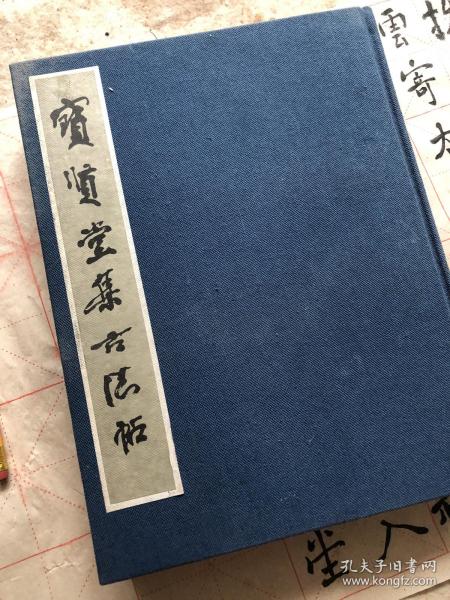 寶賢堂集古法帖
雲寄
孔夫子旧书网
www.kongfz.com